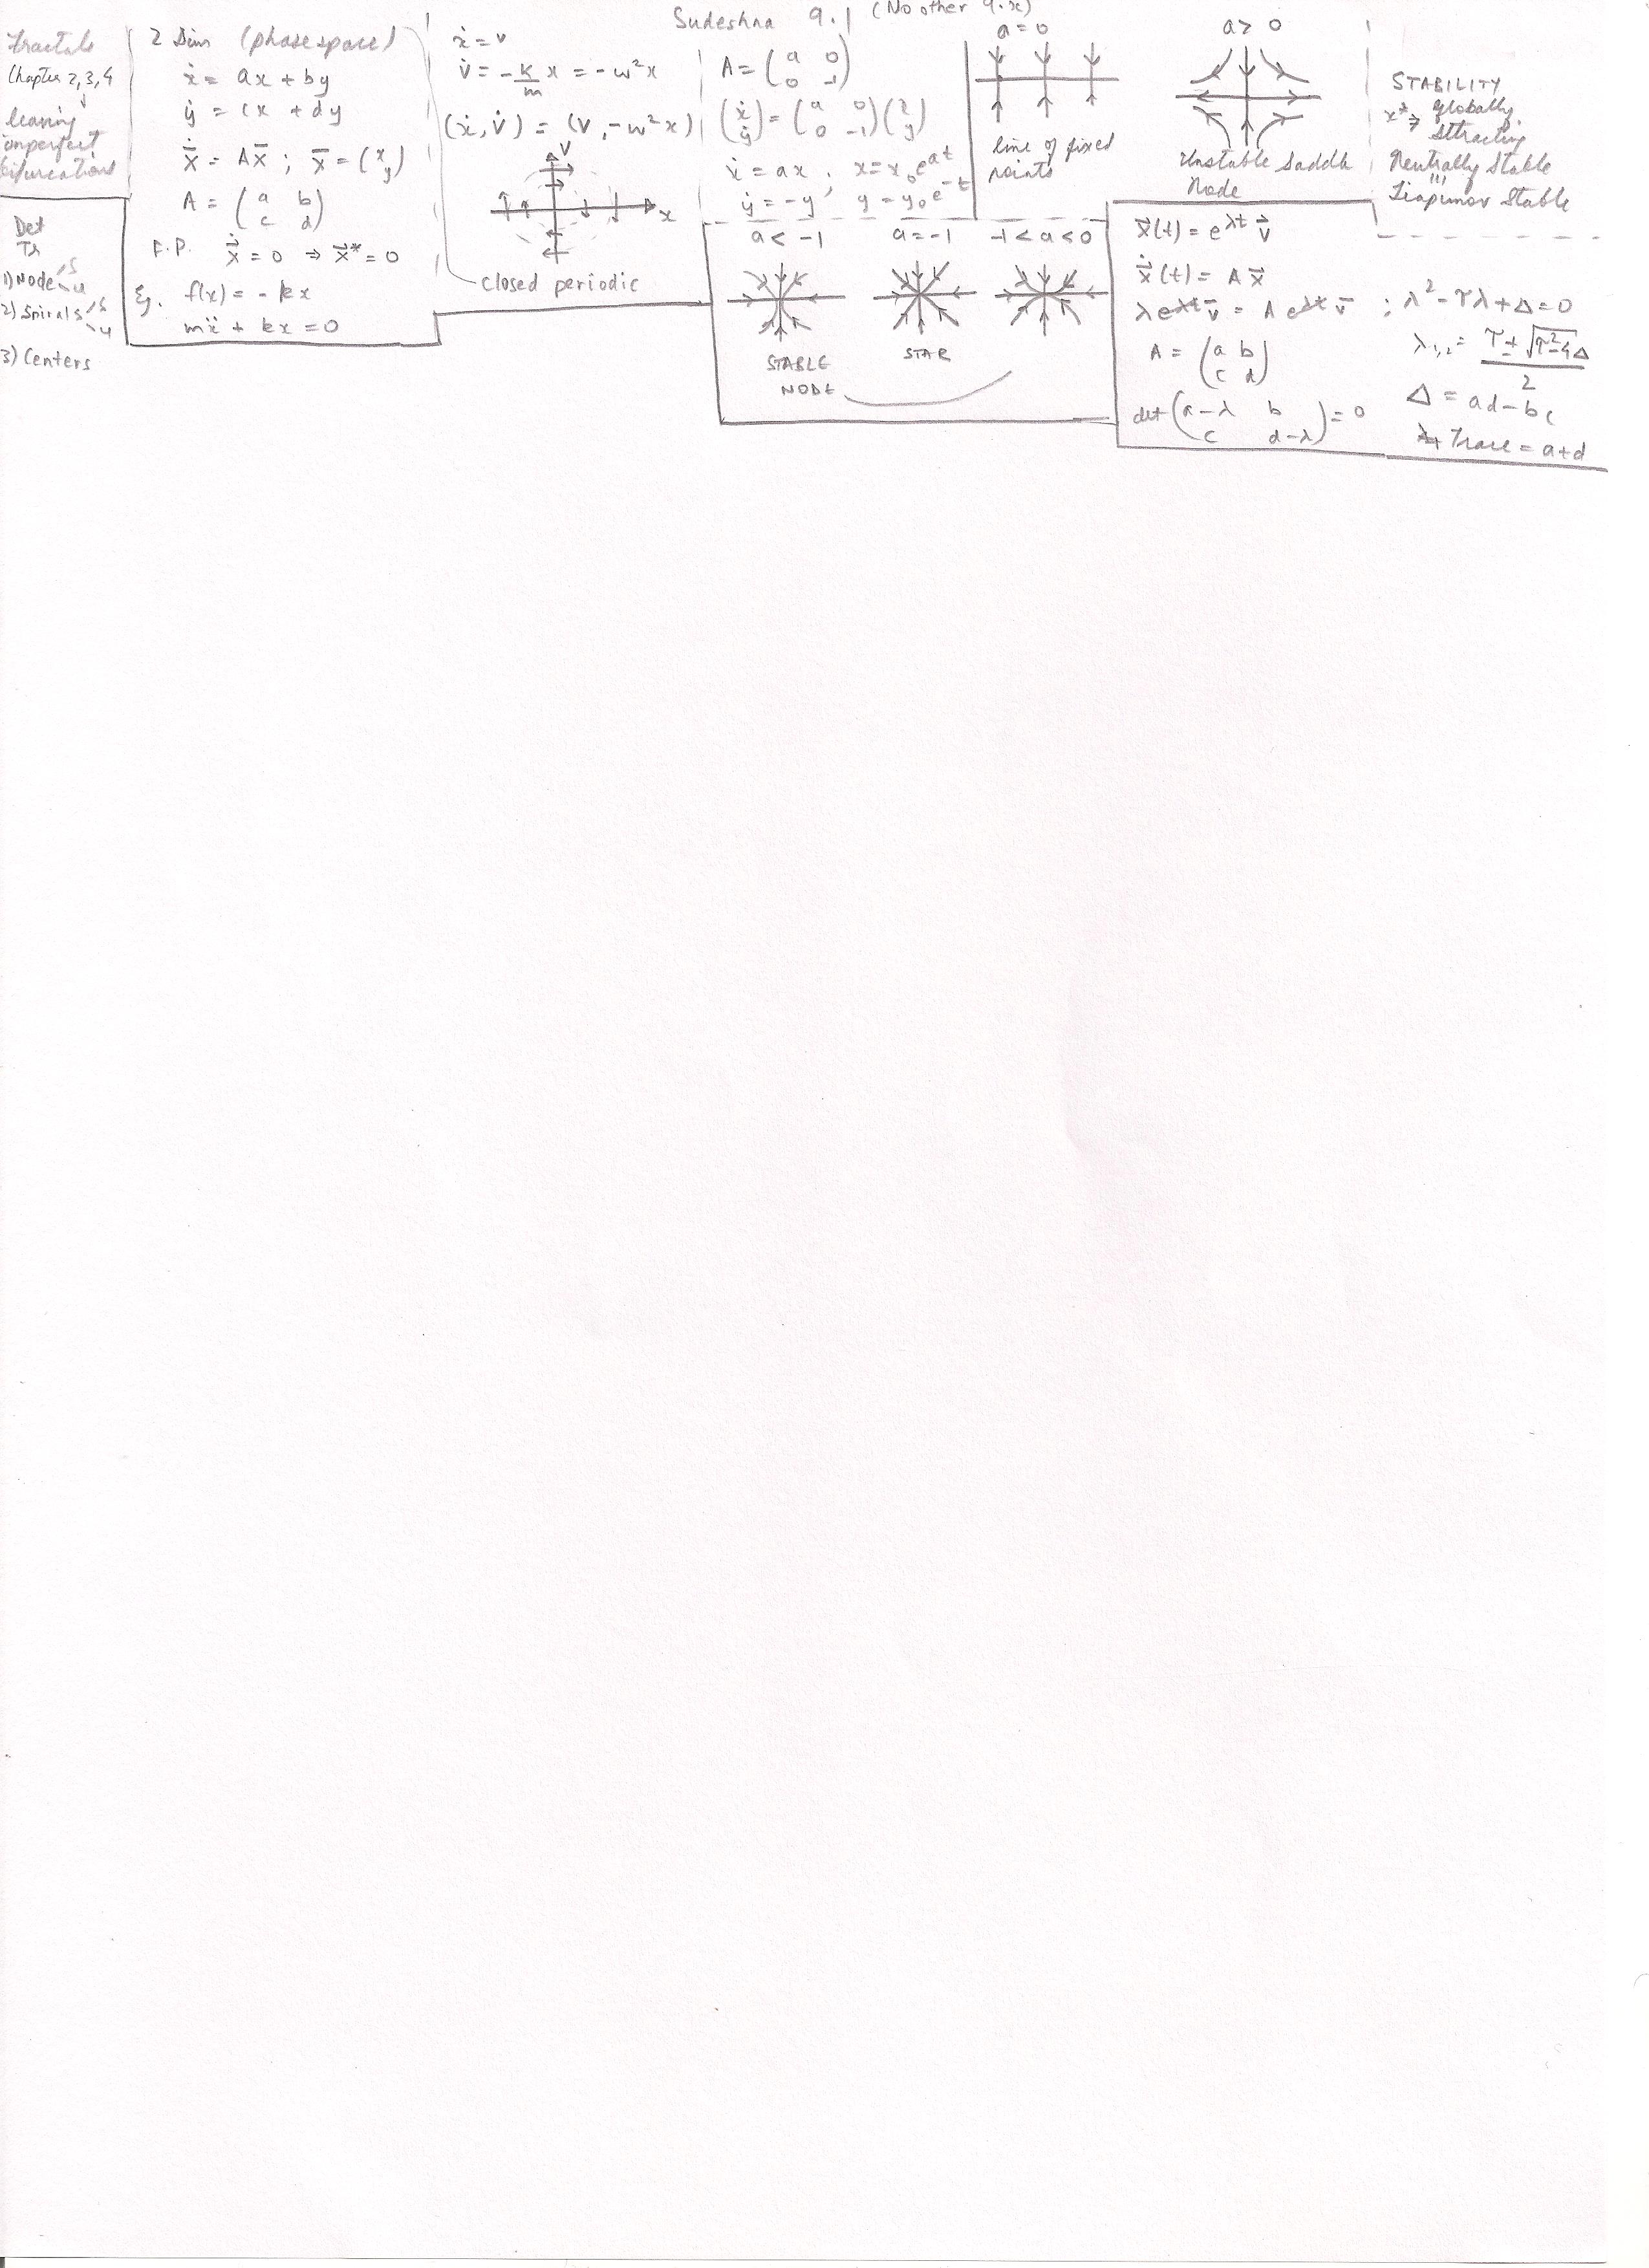 Sudeshna 9.1 (No other 9.x)
Fractals
Chapter 2,3,4
leaving
imperfect
bifurcations
Det
Tr
1) Node S
u
2) Spirals S
u
3) Centers
2 Dim (phase space)
ẋ = ax + by
ẏ = cx + dy
ẋ = Ax̄ ; x̄ = (x y)
A = (a b
c d)
F.P. ẋ = 0 ⇒ x⃗* = 0
Eg. f(x) = -kx
mẍ + kx = 0
ẋ = v
v̇ = -k/m x = -ω²x
(ẋ, v̇) = (v, -ω²x)
v
x
closed periodic
A = (a 0
0 -1)
(ẋ ẏ) = (a 0
0 -1)(x y)
ẋ = ax ; x = x₀e^at
ẏ = -y ; y = y₀e^-t
a = 0
line of fixed
points
a > 0
Unstable Saddle
Node
STABILITY
x* ⇒ globally
attracting
Neutrally Stable
Liapunov Stable
a < -1
a = -1
-1 < a < 0
STABLE
NODE
STAR
x⃗(t) = e^λt v⃗
ẋ(t) = A x⃗
λ e^λt v̄ = A e^λt v̄ ; λ² - τλ + Δ = 0
A = (a b
c d)
det (a-λ b
c d-λ) = 0
λ₁,₂ = τ ± √τ²-4Δ
2
Δ = ad - bc
Trace = a+d